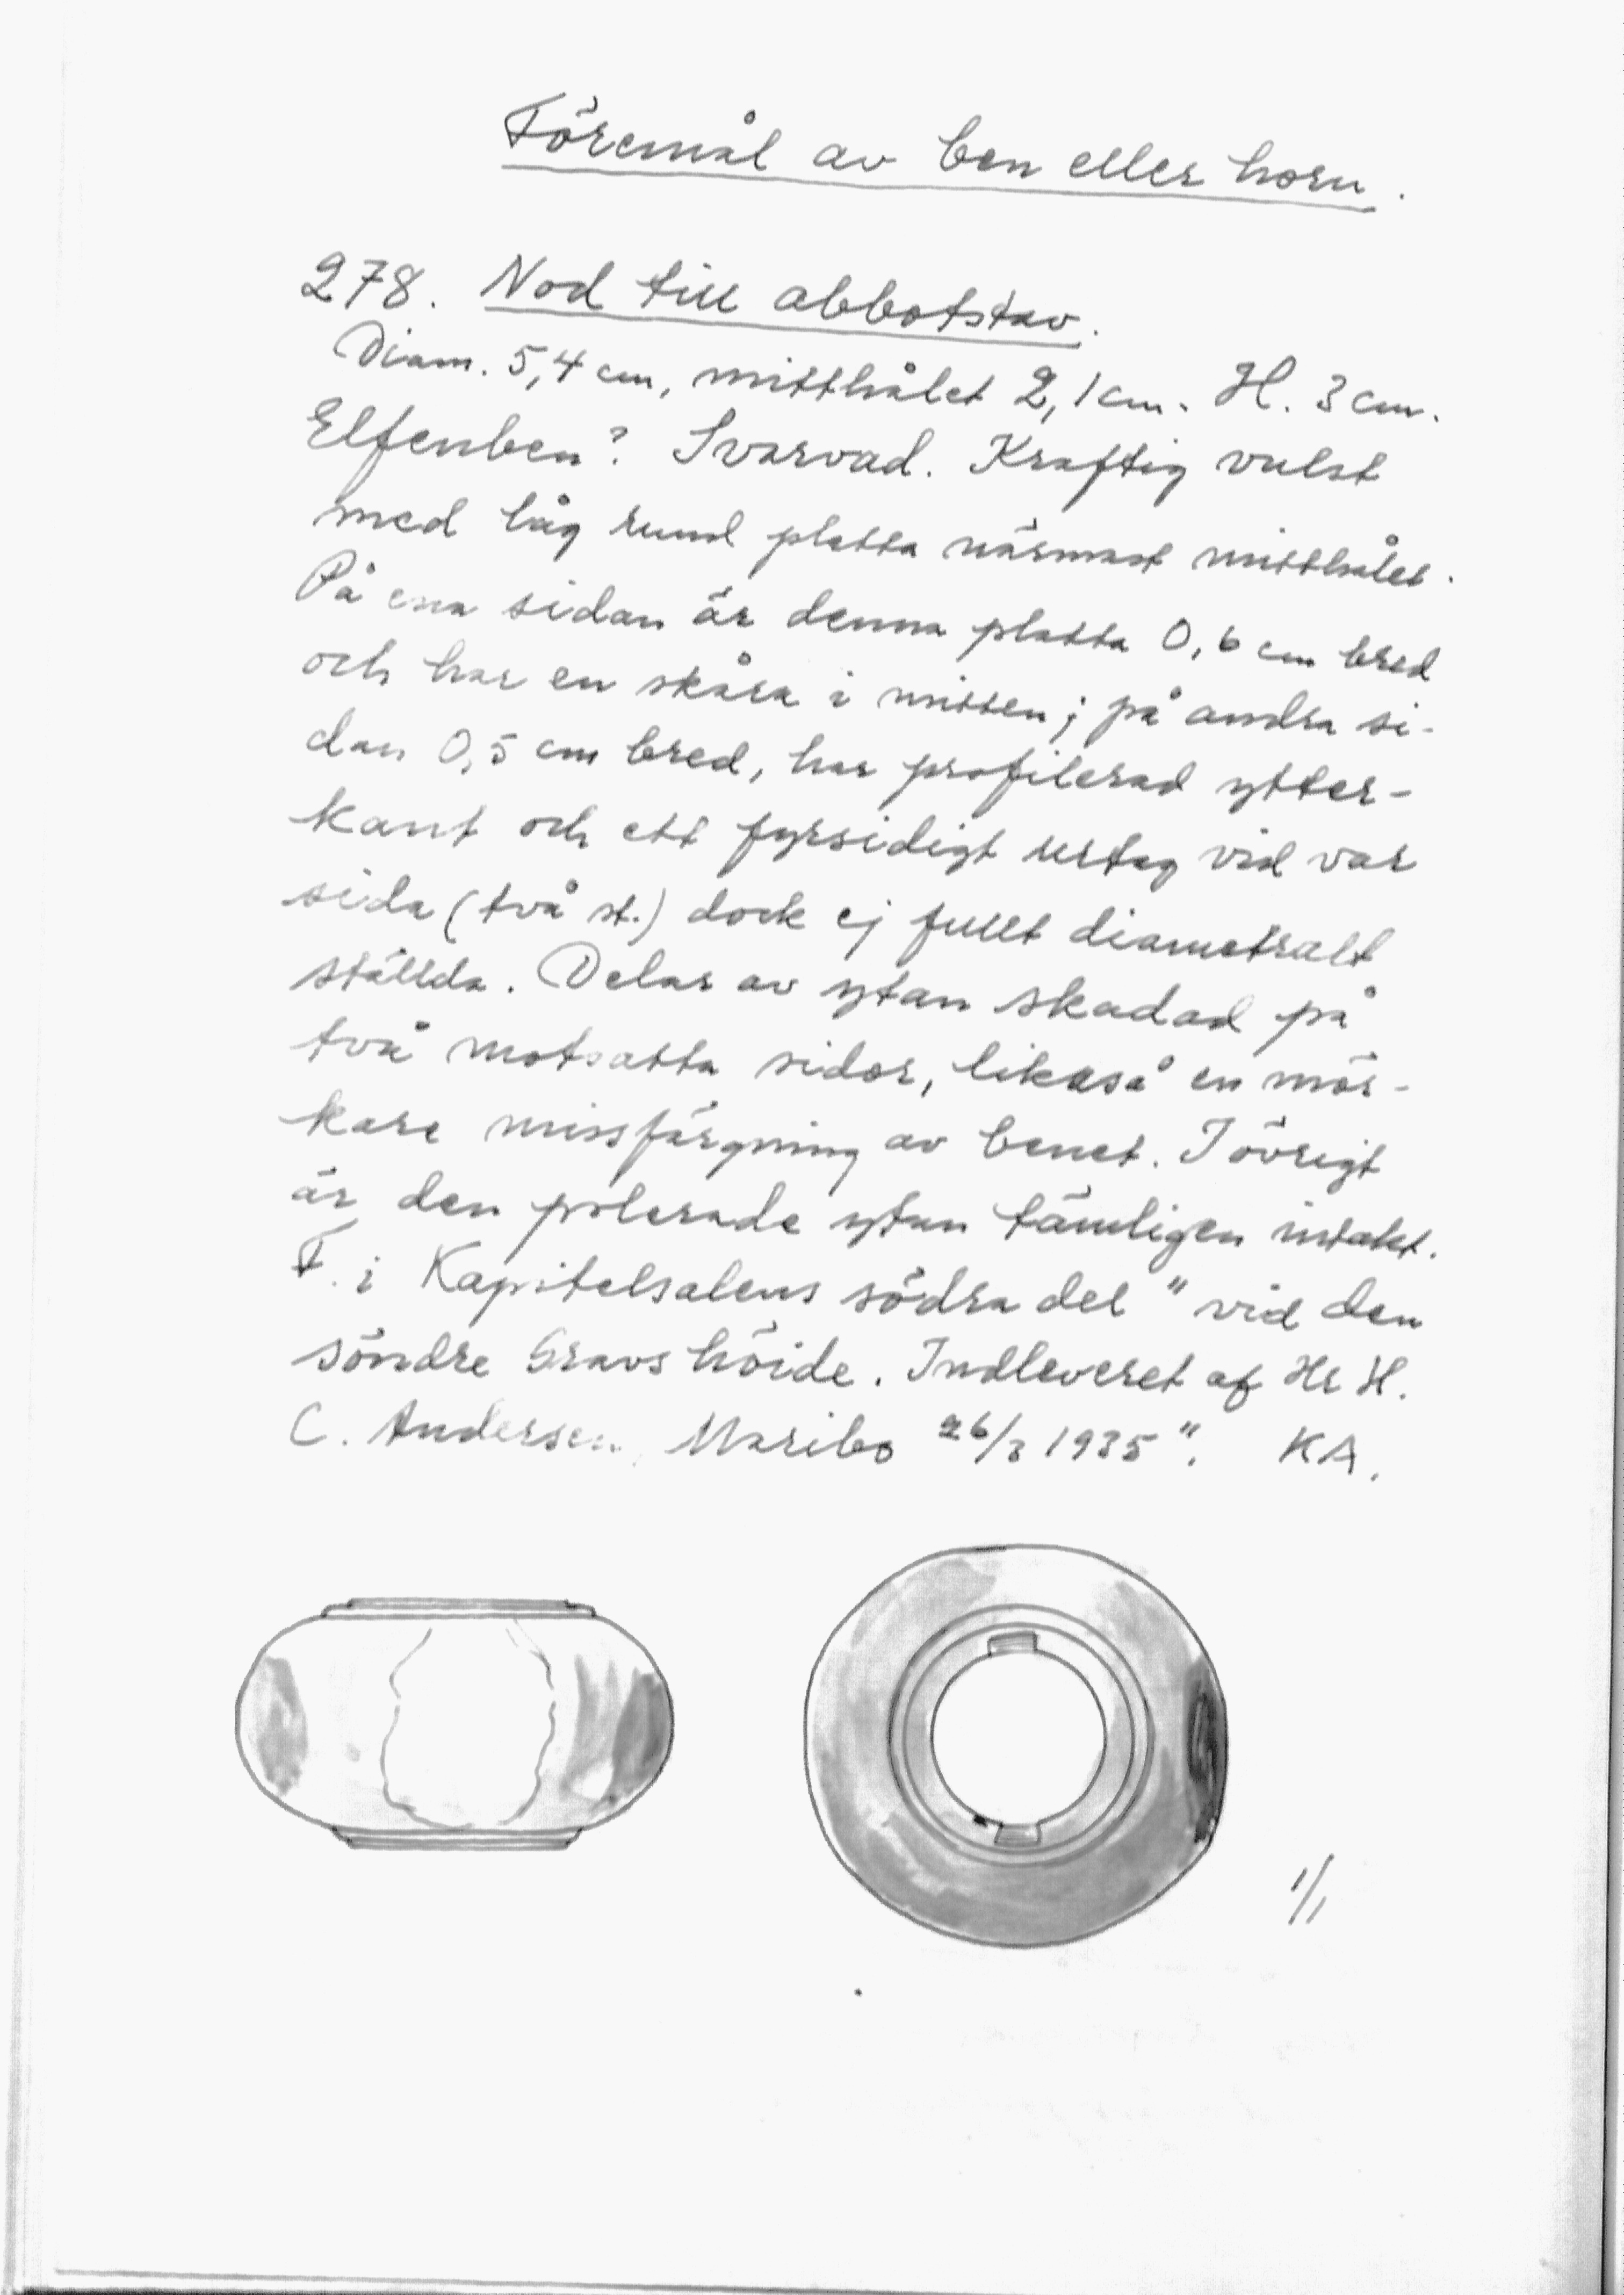 Föremål av ben eller horn.
278. Nod till abbotstav.
Diam. 5,4 cm, mitthålet 2,1 cm. H. 3 cm.
Elfenben? Svarvad. Kraftig vulst
med låg rund platta närmast mitthålet.
På ena sidan är denna platta 0,6 cm bred
och har en skåra i mitten; på andra si-
dan 0,5 cm bred, har profilerad ytter-
kant och ett fyrsidigt urtag vid var
sida (två st.) dock ej fullt diametralt
ställda. Delar av ytan skadad på
två motsatta sidor, likaså en mör-
kare missfärgning av benet. I övrigt
är den polerade ytan tämligen intakt.
F. i Kapitelsalens södra del "vid den
söndre Gravshöide. Indleveret af Hr H.
C. Andersen, Maribo 26/3 1935". KA.
1/1